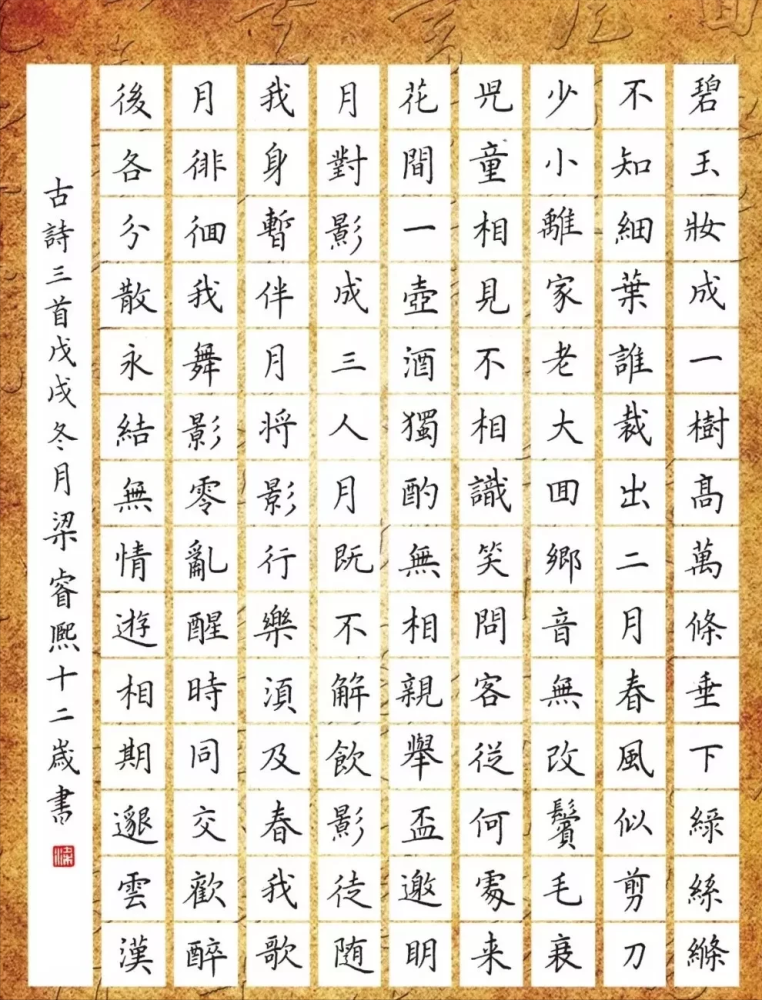 碧玉妝成一樹髙萬條垂下緑絲縧
不知細葉誰裁出二月春風似剪刀
少小離家老大囬鄉音無改鬢毛衰
児童相見不相識笑問客從何處来
花間一壺酒獨酌無相親舉盃邀明
月對影成三人月既不解飲影徒随
我身暫伴月将影行樂須及春我歌
月徘徊我舞影零亂醒時同交歡醉
後各分散永結無情遊相期邈雲漢
古詩三首戊戌冬月梁睿熙十二歲書
梁